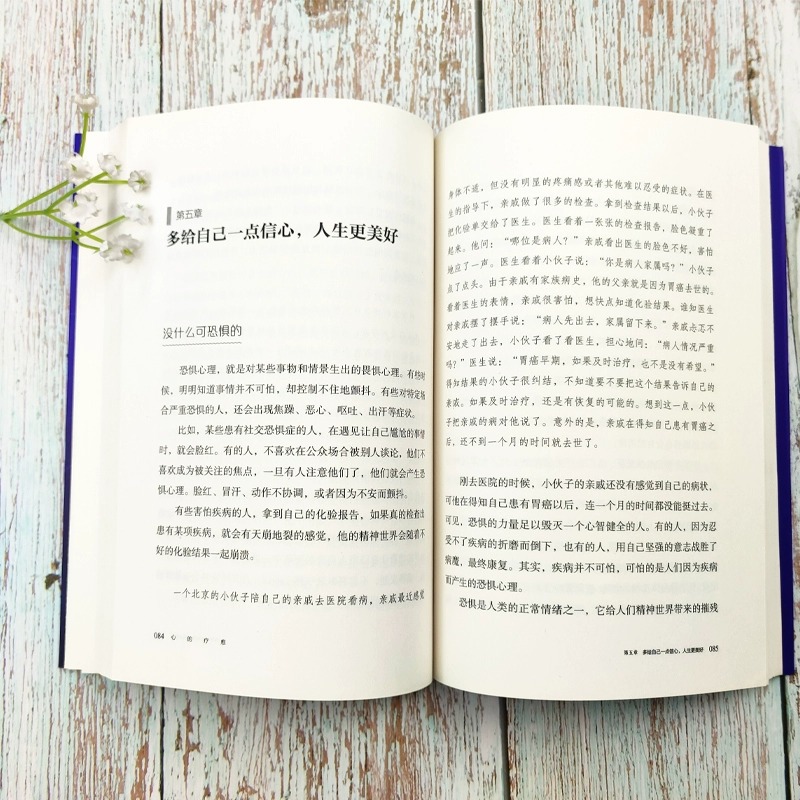 第五章
多给自己一点信心，人生更美好
没什么可恐惧的
恐惧心理，就是对某些事物和情景生出的畏惧心理。有些时
候，明明知道事情并不可怕，却控制不住地颤抖。有些对特定场
合严重恐惧的人，还会出现焦躁、恶心、呕吐、出汗等症状。
比如，某些患有社交恐惧症的人，在遇见让自己尴尬的事情
时，就会脸红。有的人，不喜欢在公众场合被别人谈论，他们不
喜欢成为被关注的焦点，一旦有人注意他们了，他们就会产生恐
惧心理。脸红、冒汗、动作不协调，或者因为不安而颤抖。
有些害怕疾病的人，拿到自己的化验报告，如果真的检查出
患有某项疾病，就会有天崩地裂的感觉，他的精神世界会随着不
好的化验结果一起崩溃。
一个北京的小伙子陪自己的亲戚去医院看病，亲戚最近感觉
084 心的疗愈
身体不适，但没有明显的疼痛感或者其他难以忍受的症状。在医
生的指导下，亲戚做了很多的检查。拿到检查结果以后，小伙子
把化验单交给了医生。医生看着一张张的检查报告，脸色凝重了
起来。他问：“哪位是病人？”亲戚看出医生的脸色不好，害怕
地应了一声。医生看着小伙子说：“你是病人家属吗？”小伙子
点了点头。由于亲戚有家族病史，他的父亲就是因为胃癌去世的。
看着医生的表情，亲戚很害怕，想快点知道化验结果。谁知医生
对亲戚摆了摆手说：“病人先出去，家属留下来。”亲戚忐忑不
安地走了出去，小伙子看了看医生，担心地问：“病人情况严重
吗？”医生说：“胃癌早期，如果及时治疗，也不是没有希望。”
得知结果的小伙子很纠结，不知道要不要把这个结果告诉自己的
亲戚。如果及时治疗，还是有恢复的可能的。想到这一点，小伙
子把亲戚的病对他说了。意外的是，亲戚在得知自己患有胃癌之
后，还不到一个月的时间就去世了。
刚去医院的时候，小伙子的亲戚还没有感觉到自己的病状，
可他在得知自己患有胃癌以后，连一个月的时间都没能挺过去。
可见，恐惧的力量足以毁灭一个心智健全的人。有的人，因为忍
受不了疾病的折磨而倒下，也有的人，用自己坚强的意志战胜了
病魔，最终康复。其实，疾病并不可怕，可怕的是人们因为疾病
而产生的恐惧心理。
恐惧是人类的正常情绪之一，它给人们精神世界带来的摧残
第五章 多给自己一点信心，人生更美好 085